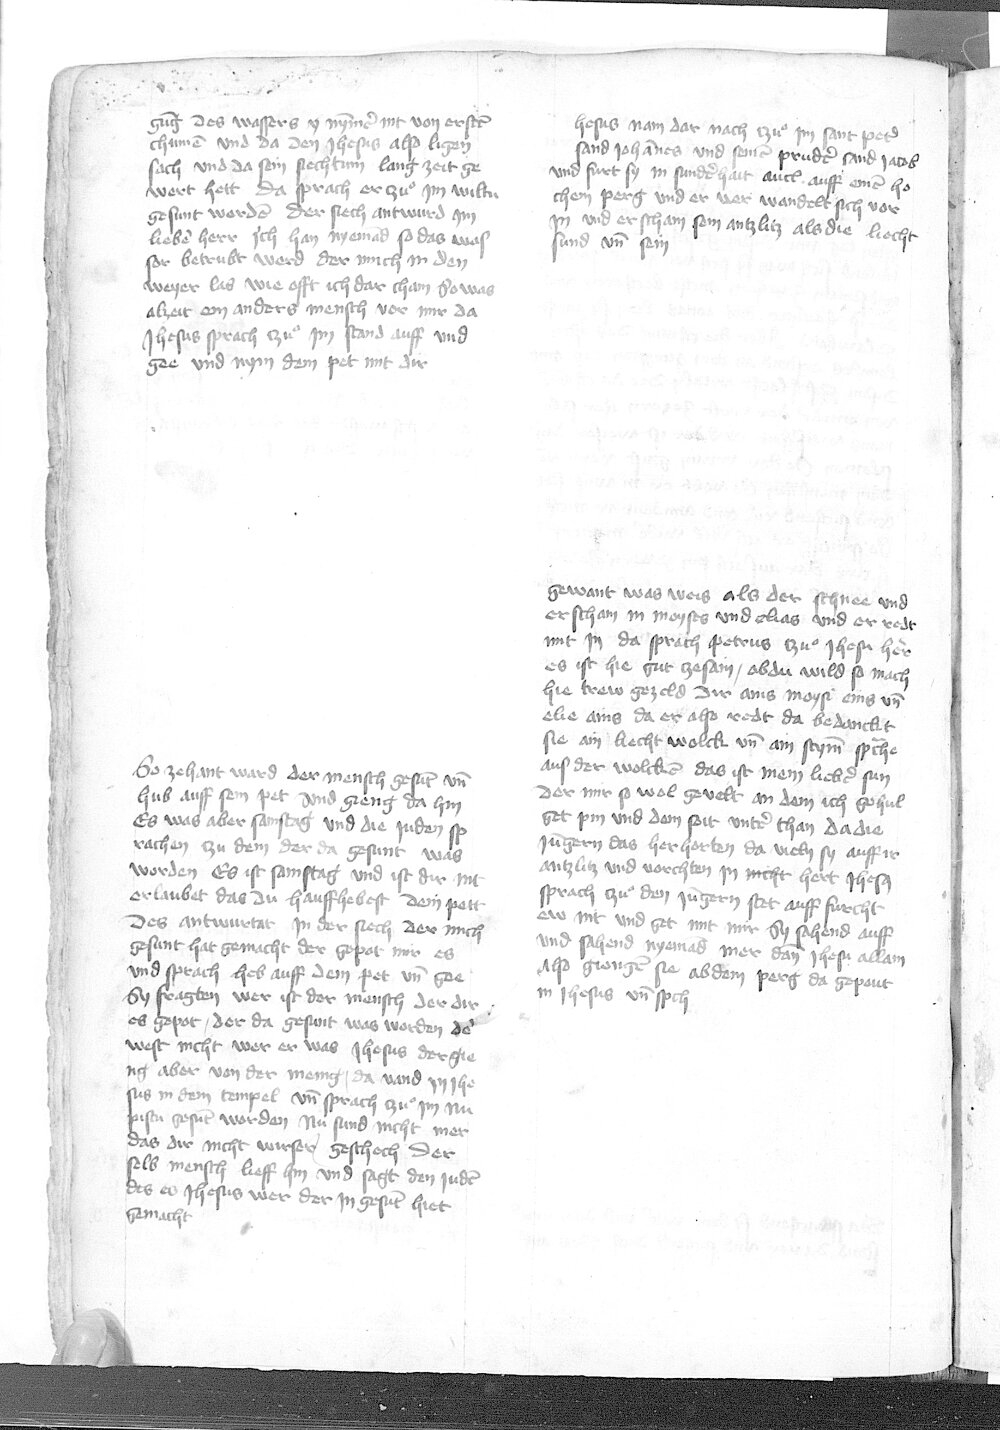 gung des wassers y nymer mt von ersten
chumen und da den Jhesus also ligen
sach und da sein siechtum lang zeit ge
wert hett da sprach er zuo im wiltu
gesunt werden Der siech antwurd im
lieber herr ich han nyemad so das was
ser betrubt werd der mich in den
weyer las wie offt ich dar cham So was
alzeit ein anders mensch vor mir da
Jhesus sprach tzuo Im stand auff und
gee und nym dein pet mit dir
So zehant ward der mensch gesut vn
hub auff sein pet Und gieng da hin
Es was aber samstag und die iuden sp
rachen zu dem der da gesunt was
worden Es ist samstag und ist dir nit
erlaubet das du hauffhebest dein pett
Des antwurtat in der siech Der mich
gesunt hat gemacht der gepot mir es
und sprach heb auff dein pet vn gee
Sy fragten wer ist der mensch der dir
es gepot / der da gesunt was worden de
west nicht wer er was Jhesus der gie
ng aber von der menig / da vand in Jhe
sus in dem tempel vn sprach tzuo im Nu
pistu gesut worden Nu sund nicht mer
das dir nicht wirser geschech Der
selb mensch lieff hin und sagt den Juden
des es Jhesus wer der in gesut hiet
gemacht
hesus nam dar nach tzuo im sant peter
sand Johannes und seinen pruder sand Jacob
und furt sy in sunderhait auf auff einen ho
chem perg und er ver wandelt sich vor
in und erscham sein antzlitz als die liecht
sund vn sein
gewant was weis als der schnee und
erscham in moyses und elias und er redt
mit in da sprach Petrus tzuo Jhesu herr
es ist hie gut zesam / obdu wild so mach
hie trew gezeld Dir ains moysi eins vn
elie ains da er also redt da bedanckt
sie ain liecht wolck vn ain stym sprache
aus der wolcken das ist mein lieber sun
Der mir so wol gevelt an dem ich gehul
get pin und dem seit unter than Da die
Jungern das her horten da vieln sy auff ir
antzlitz und vorchten in nicht hert Jhesus
sprach tzuo den Jungern stet auff furcht
ew nit und get mit mir Sy sahend auff
und sahend nyemad mer dan Jhesu allain
Also giengen sie ab dem perg da gepout
in Jhesus vn spch